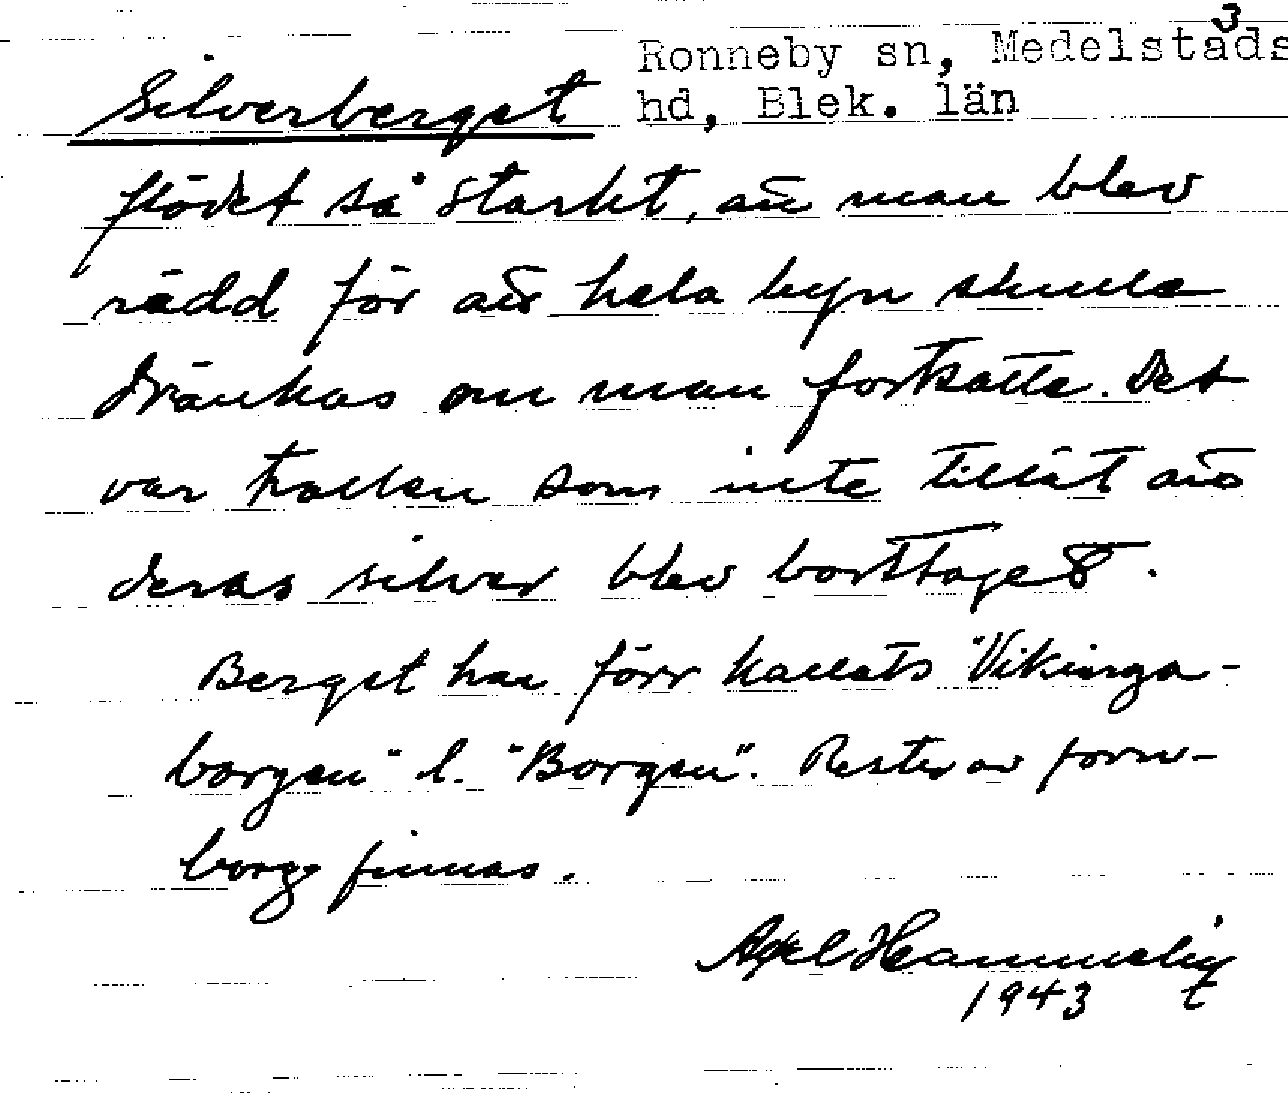 3
Ronneby sn, Medelstads
hd, Blek. län
Silverberget
flödet så starkt, att man blev
rädd för att hela byn skulle
dränkas om man fortsatte. Det
var trollen som inte tillät att
deras silver blev borttaget.
Berget har förr kallats "Vikinga-
borgen" l. "Borgen". Rester av forn-
borg finnas.
Axel
1943